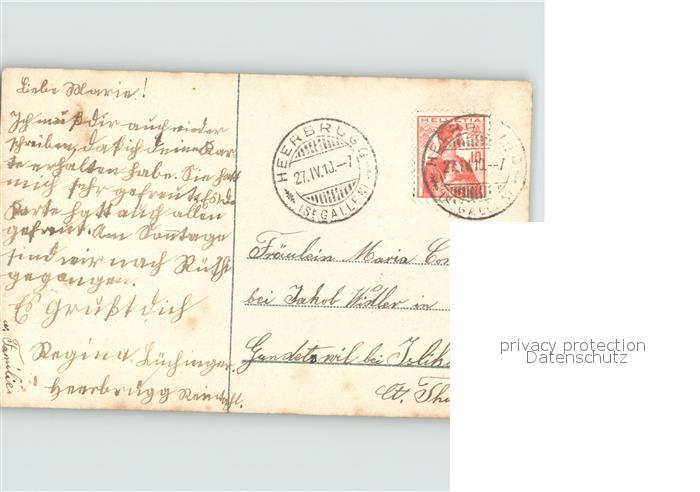 Liebe Marie!
Ich muß dir auch wieder
schreiben, daß ich deine Kar-
te erhalten habe. Sie hatt
mich sehr gefreut,
Karte hatt auch allen
gefreut. Am Sonntage
sind wir nach Rüthi
gegangen.
Es Grüßt dich
Regina Lüchinger.
Heerbrugg
u. Familie
HEERBRUGG
27.IV.10.-7
(St. GALLEN)
HELVETIA
10
HEERBRUGG
27.IV.10.-7
(St. GALLEN)
Fräulein Maria
bei Jakob Widler in
bei
Ct. Thu
privacy protection
Datenschutz